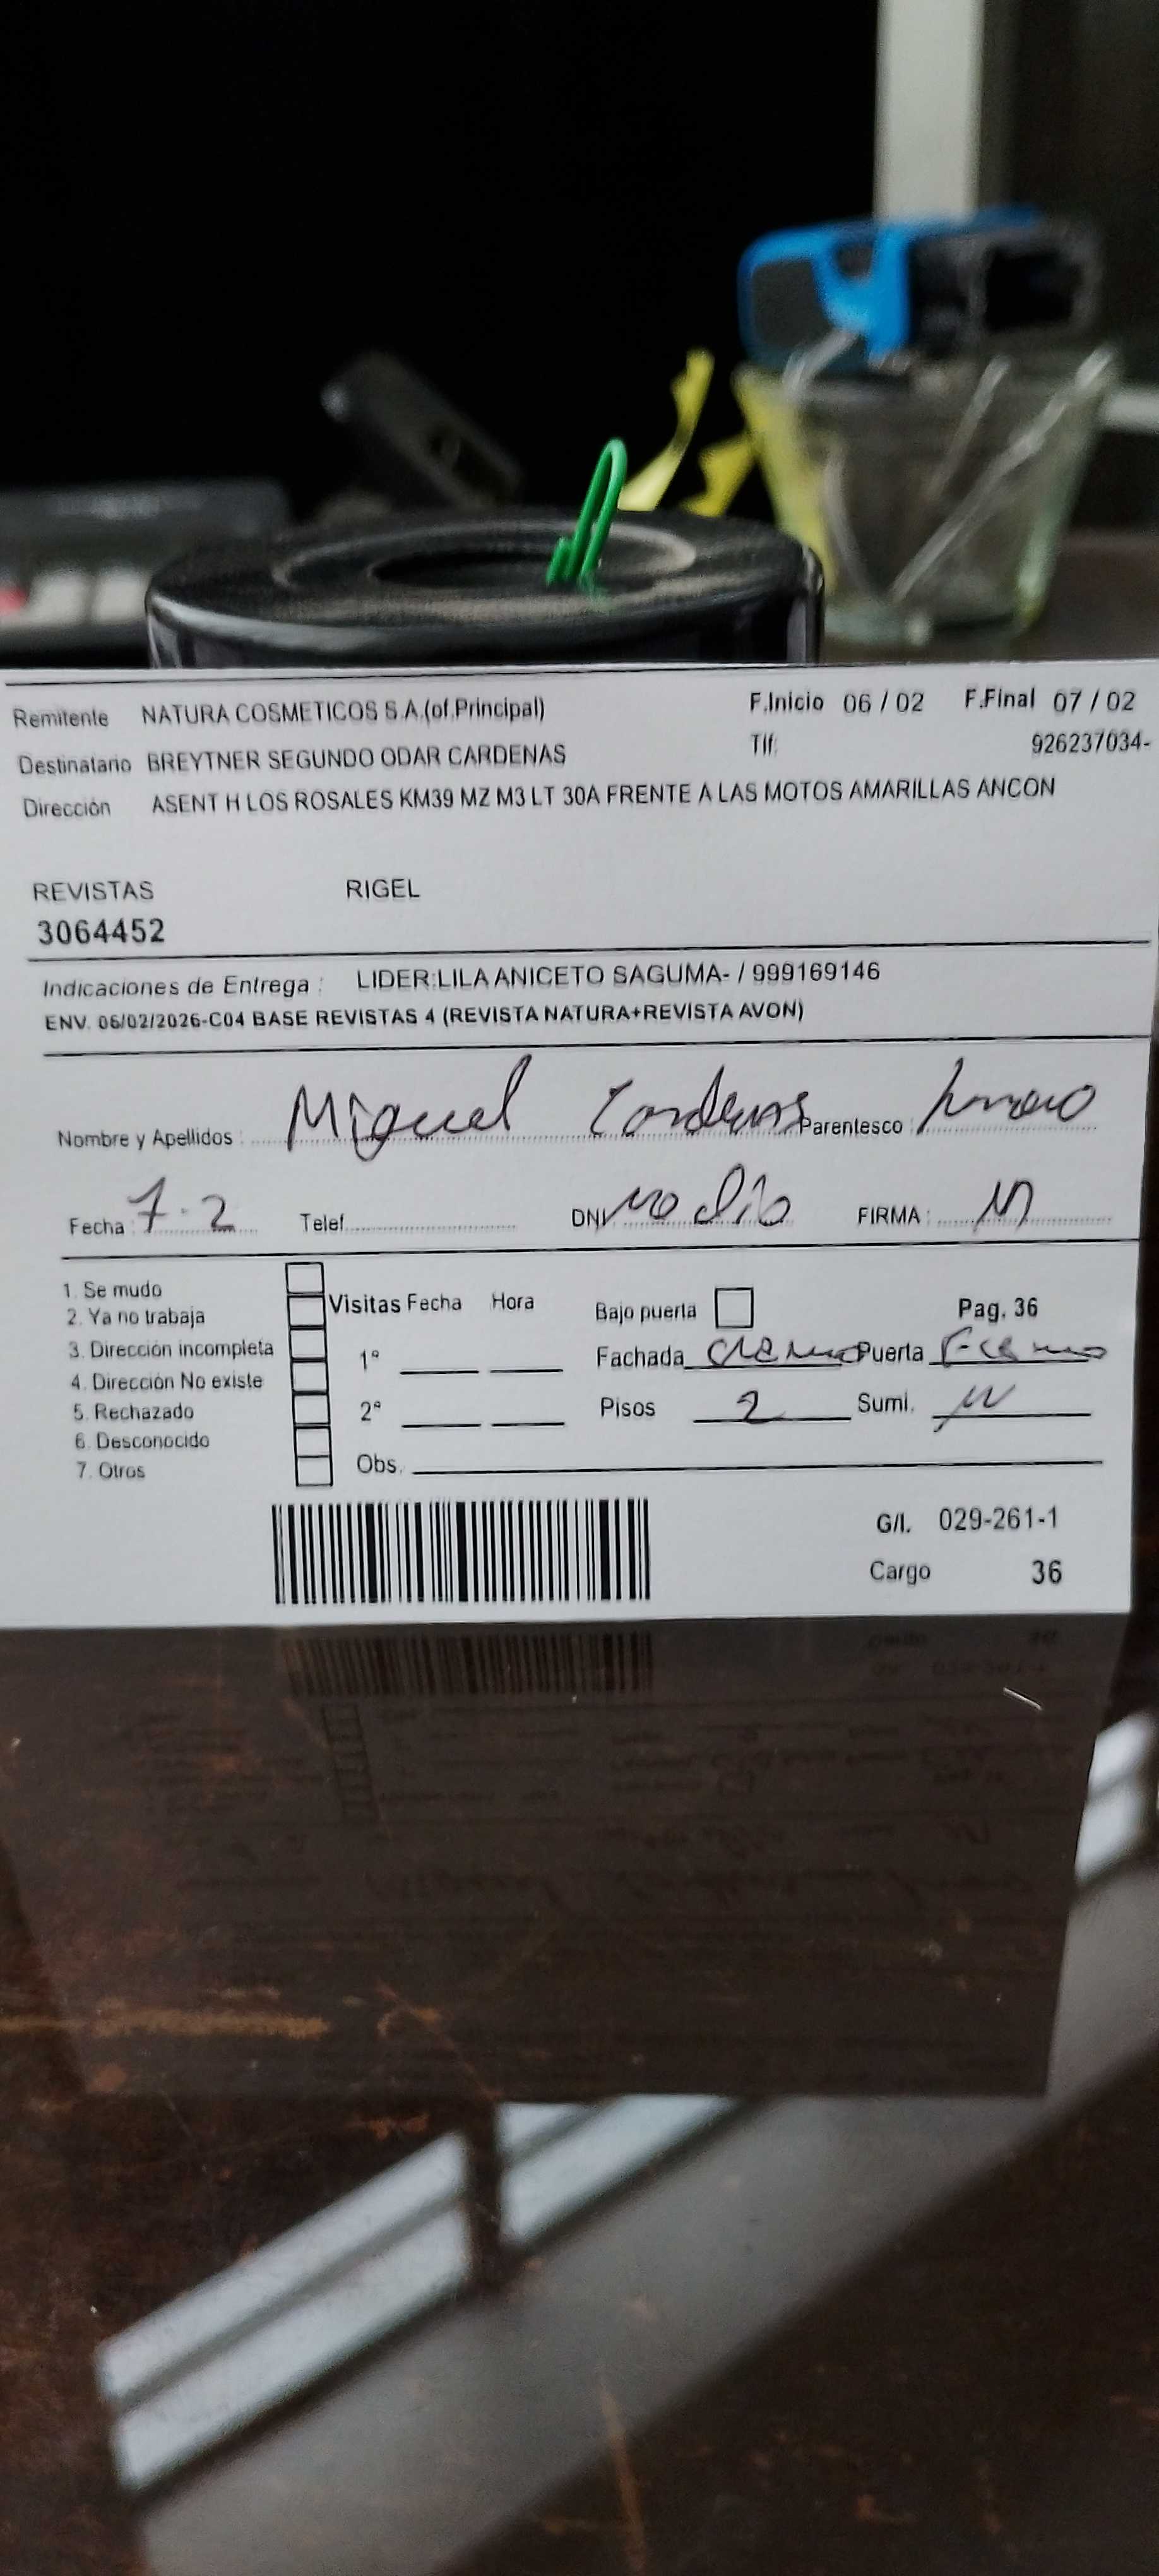 Remitente NATURA COSMETICOS S.A.(of.Principal) F.Inicio 06 / 02 F.Final 07 / 02
Destinatario BREYTNER SEGUNDO ODAR CARDENAS Tlf: 926237034-
Dirección ASENT H LOS ROSALES KM39 MZ M3 LT 30A FRENTE A LAS MOTOS AMARILLAS ANCON
REVISTAS RIGEL
3064452
Indicaciones de Entrega : LIDER:LILA ANICETO SAGUMA- / 999169146
ENV. 06/02/2026-C04 BASE REVISTAS 4 (REVISTA NATURA+REVISTA AVON)
Nombre y Apellidos : Miguel Cardenas Parentesco :
Fecha : 7.2 Telef. DNI no dio FIRMA : M
1. Se mudo
2. Ya no trabaja Visitas Fecha Hora Bajo puerta Pag. 36
3. Dirección incompleta 1ª Fachada Puerta
4. Dirección No existe
5. Rechazado 2ª Pisos 2 Sumi.
6. Desconocido
7. Otros Obs.
G/I. 029-261-1
Cargo 36